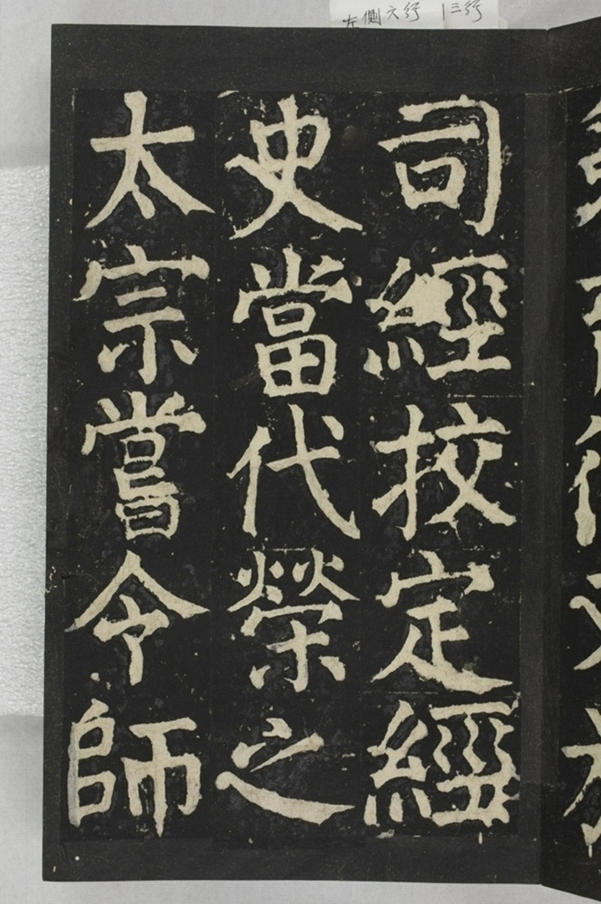 左側六行 | 三行
司經挍定經
史當代榮之
太宗嘗令師